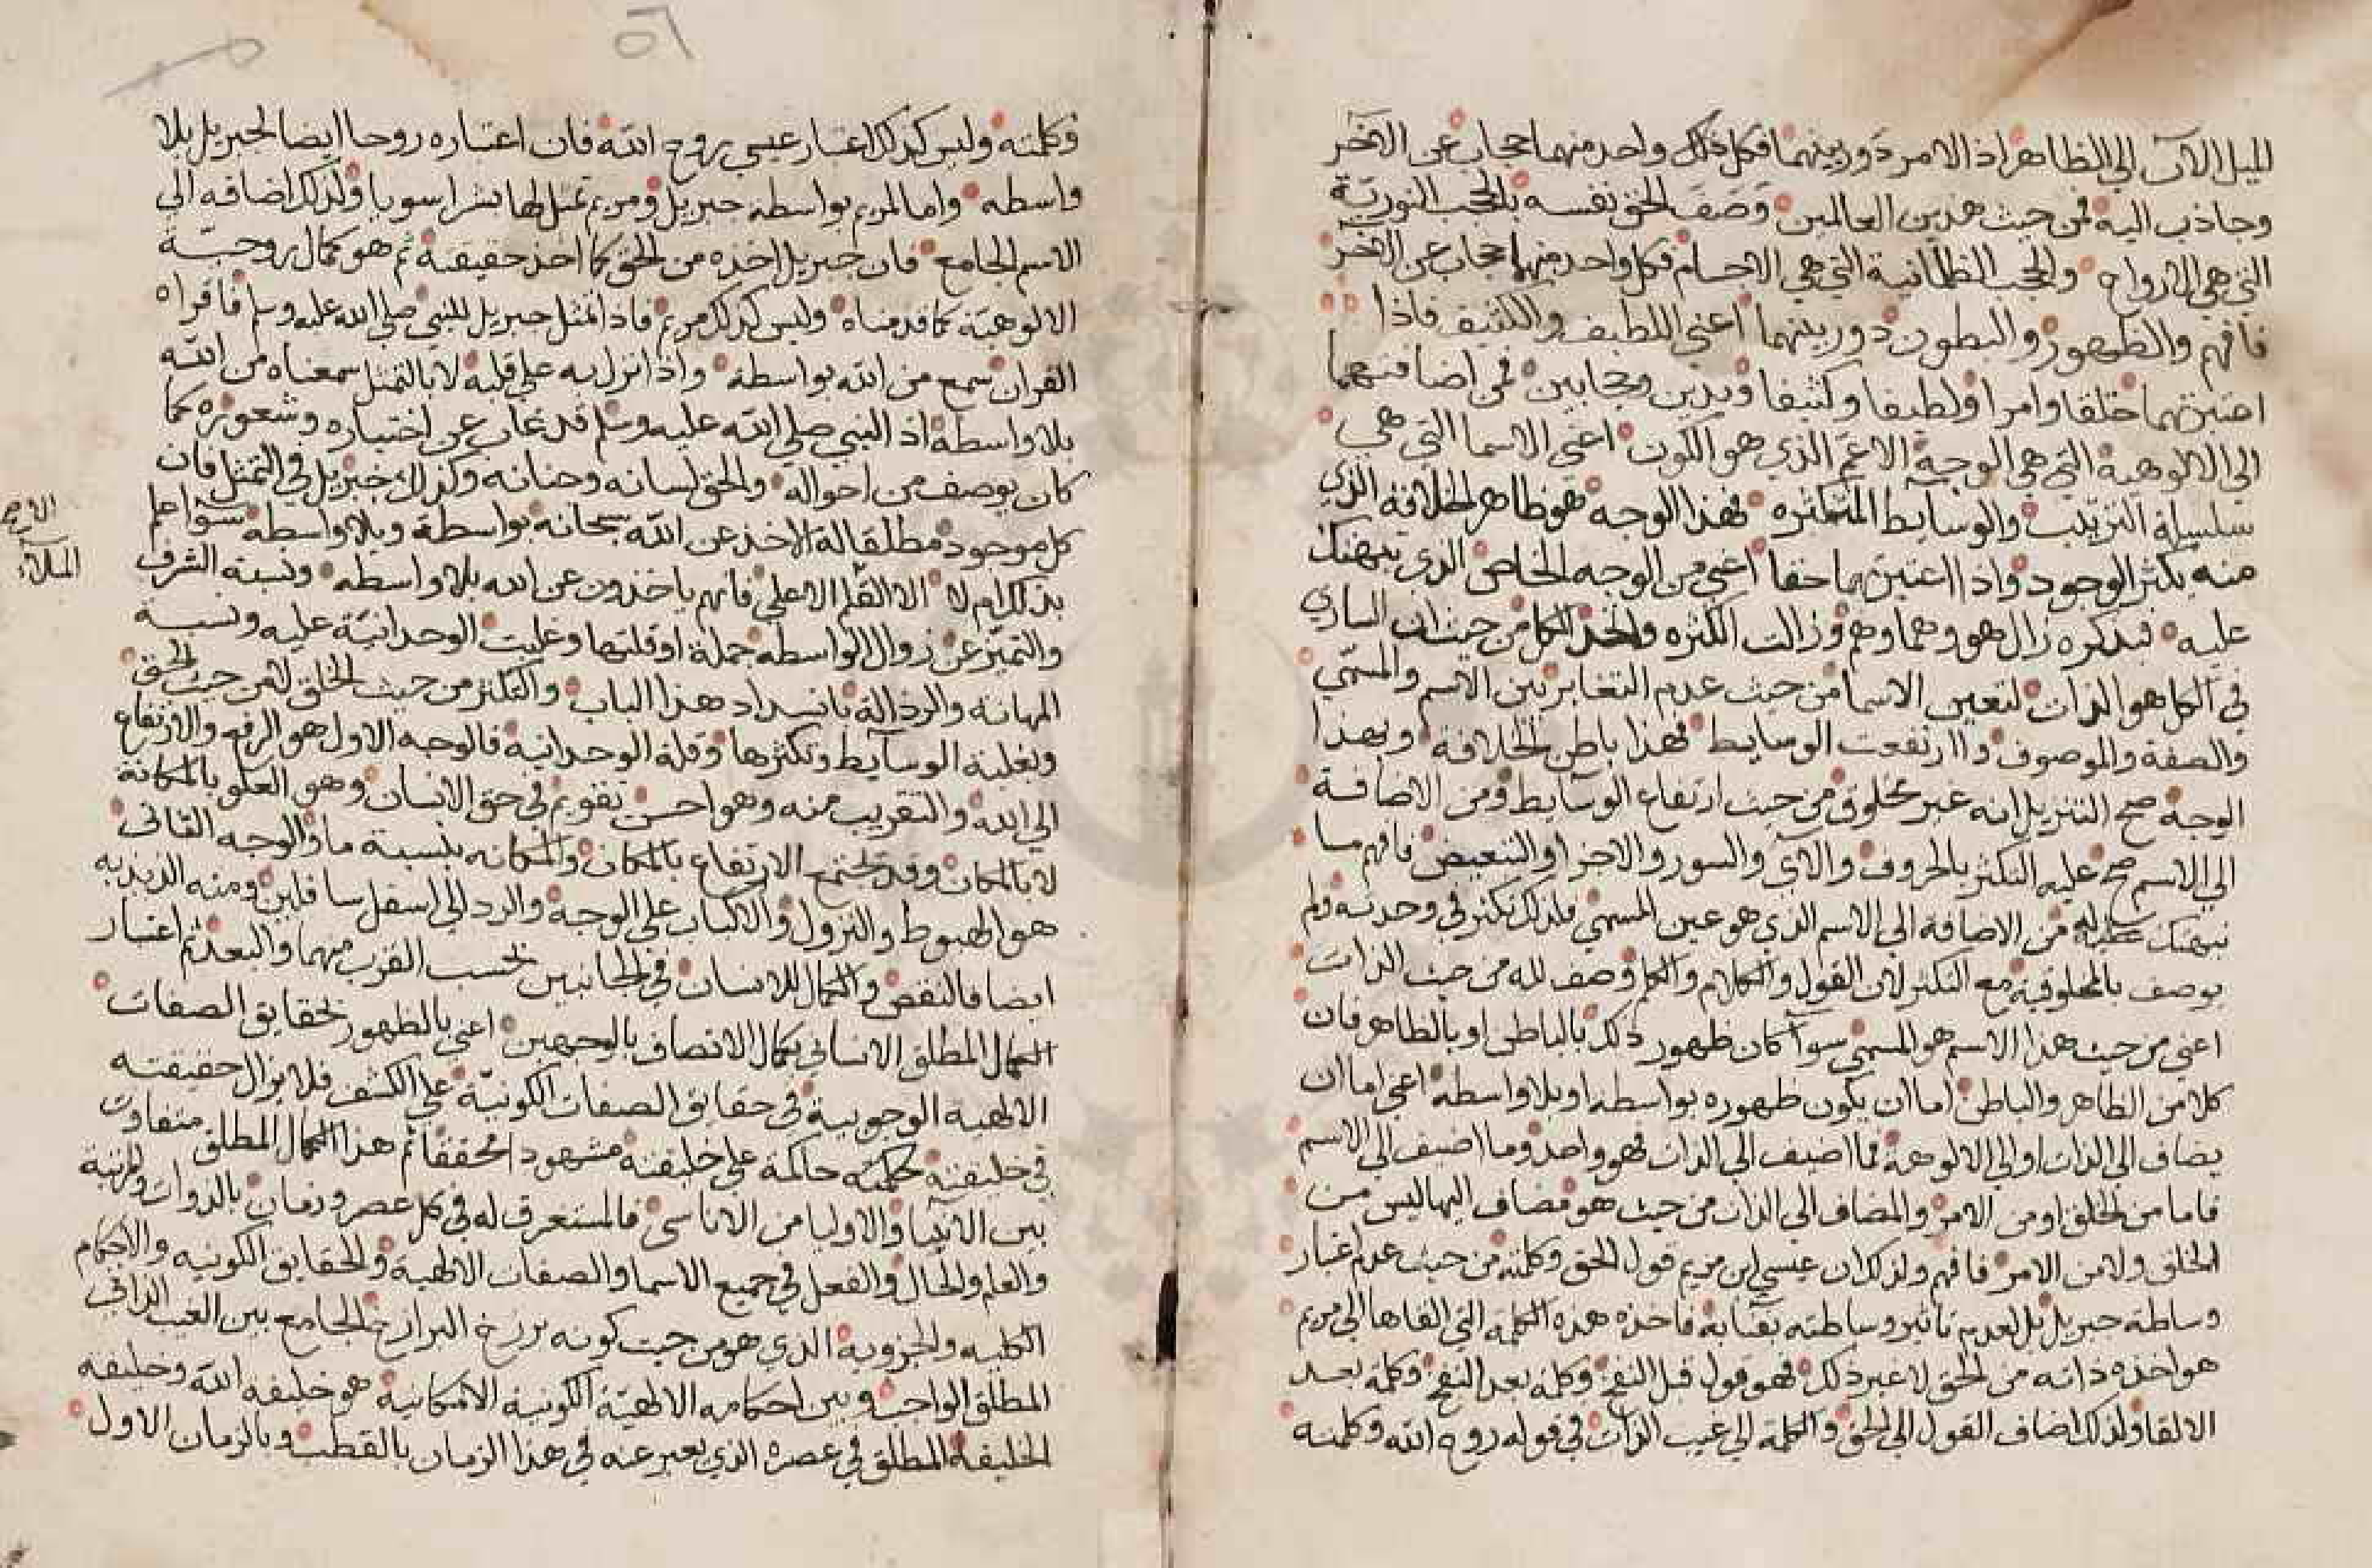 للميل الان الى الظاهر اذ الامر دوري بينهما فكل ذلك واحد منهما حجاب عن الاخر
وجاذب اليه فمن حيث هذين العالمين وصف الحق نفسه بالحجب النورية
التي هي الارواح والحجب الظلمانية التي هي الاجسام فكل واحد منهما حجاب عن الاخر
فافهم والظهور والبطون دور بينهما اعني اللطيف والكثيف فاذا
اعتبرتهما خلقا وامرا ولطيفا وكثيفا ويدين وحجابين فمن اضافتهما
الى الالوهية التي هي الوجه الاعم الذي هو الكون اعني الاسما التي هي
سلسلة الترتيب والوسايط المتكثره فهذا الوجه هو ظاهر الخلافة الذي
منه يكثر الوجود واذا اعتبرتهما حقا اعني من الوجه الخاص الذي نبهتك
عليه فبذكره زال هو وهما وهم وزالت الكثره واتخذ الكل من حيث ان الساري
في الكل هو الذات لتعين الاسما من حيث عدم التغاير بين الاسم والمسمى
والصفة والموصوف واارتفعت الوسايط فهذا باطن الخلافة وبهذا
الوجه صح التنزيل انه غير مخلوق من حيث ارتفاع الوسايط ومن الاضافة
الى الاسم صح عليه التكثر بالحروف والآي والسور والاجزا والتبعيض فافهم ما
نبهتك عليه من الاضافة الى الاسم الذي هو عين المسمى فلذلك تكثر في وحدته ولم
يوصف بالمخلوقية مع التكثر لان القول والكلام والكلم وصف لله من حيث الذات
اعني من حيث هذا الاسم هو المسمى سوآ كان ظهور ذلك بالباطن او بالظاهر فان
كلا من الظاهر والباطن اما ان يكون ظهوره بواسطه او بلا واسطه اعني اما ان
يضاف الى الذات او الى الالوهية فما اضيف الى الذات فهو واحد وما اضيف الى الاسم
فاما من الخلق او من الامر والمضاف الى الذات من حيث هو مضاف اليها ليس من
الخلق ولا من الامر فافهم ولذلك كان عيسى ابن مريم قول الحق وكلمته من حيث عدم اعتبار
وساطة جبريل بل لعدم تاثير وساطته بقابه فاخذه هذه الكلمة التي القاها الى مريم
هو اخذه ذاته من الحق لا غير ذلك فهو قول قبل النفخ وكلمه بعد النفخ وكلمة بعد
الالقا ولذلك اضاف القول الى الحق والكلمة الى غيب الذات في قوله روح الله وكلمته
٥٦
وكلمته وليس كذلك اعتبار عيسى روح الله فان اعتباره روحا ايضا لجبريل بلا
واسطه واما لمريم بواسطة جبريل ومريم تمثل لها بشرا سويا ولذلك اضافه الى
الاسم الجامع فان جبريل اخذه من الحق كما اخذ حقيقته ثم هو كمال روحية
الالوهية كما قدمناه وليس كذلك مريم فاذا تمثل جبريل للنبي صلى الله عليه وسلم فاقراه
القران سمع من الله بواسطة واذا نزل به على قلبه لا بالتمثل سمعناه من الله
بلا واسطة اذ النبي صلى الله عليه وسلم قد غاب عن اختياره وشعوره كما
كان يوصف من احواله والحق لسانه وجنانه وكذلك جبريل في التمثل فان
كل موجود مطلقا له الاخذ عن الله سبحانه بواسطة وبلا واسطه سوآ علم
بذلك ام لا الا القلم الاعلى فانهم ياخذون عن الله بلا واسطه ونسبة الشرف
والتميز عن زوال الواسطه جملة او قلتها وغلبت الوحدانية عليه ونسبة
المهانة والرذالة بانسداد هذا الباب والتكثر من حيث الخلق لا من حيث الحق
وبغلبة الوسآيط وتكثرها وقلة الوحدانية فالوجه الاول هو الرفع والارتفاع
الى الله والتقريب منه وهو احسن تقويم في حق الانسان وهو العلو بالمكانة
لا بالمكان وقد تجتمع الارتفاع بالمكان والمكانه بنسبة ما والوجه الثانى
هو الهبوط والنزول والانكباب على الوجه والرد الى اسفل سافلين ومنه الذبذبه
ايضا فالنقص والكمال للانسان في الجانبين بحسب القرب منهما والبعد ثم اعتبار
الكمال المطلق الانساني بكمال الاتصاف بالوجهين اعني بالظهور بحقايق الصفات
الالهية الوجوبية في حقايق الصفات الكونية على الكشف فلا يزال حقيقته
في خليقته حاكمة على خليقته مشهودا محققا ثم هذا الكمال المطلق متفاوت
بين الانبيا والاوليا من الاناسى فالمستغرق له في كل عصر وزمان بالذوات والمرتبة
والعلم والحال والفعل في جميع الاسما والصفات الالهية والحقايق الكونيه والاحكام
الكليه والجزويه الذي هو من حيث كونه برزخ البرازخ الجامع بين الغيب الذاتي
المطلق الواجب وبين احكامه الالهية الكونية الامكانية هو خليفه الله وخليفه
الخليفه المطلق في عصره الذي يعبر عنه في هذا الزمان بالقطب وبالزمان الاول
الملآء